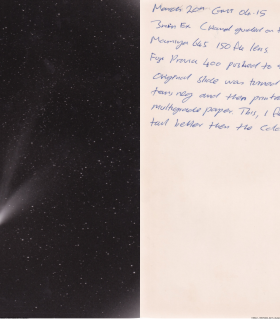 March 20th GMT 04.15
(Hand guided on
Mamiya 645 150 f4 lens
Fuji Provia 400 pushed to
original slide was turned
and then printed
multigrade paper. This, I f
tail better than the colo